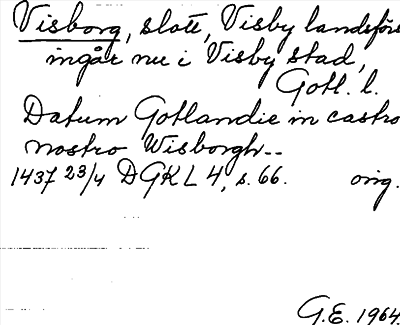 Visborg, slott, Visby landsförs
ingår nu i Visby stad,
Gotl. l.
Datum Gotlandie in castro
nostro Wisborgh--
1437 23/4 DGKL 4, s. 66. orig.
G.E. 1964.